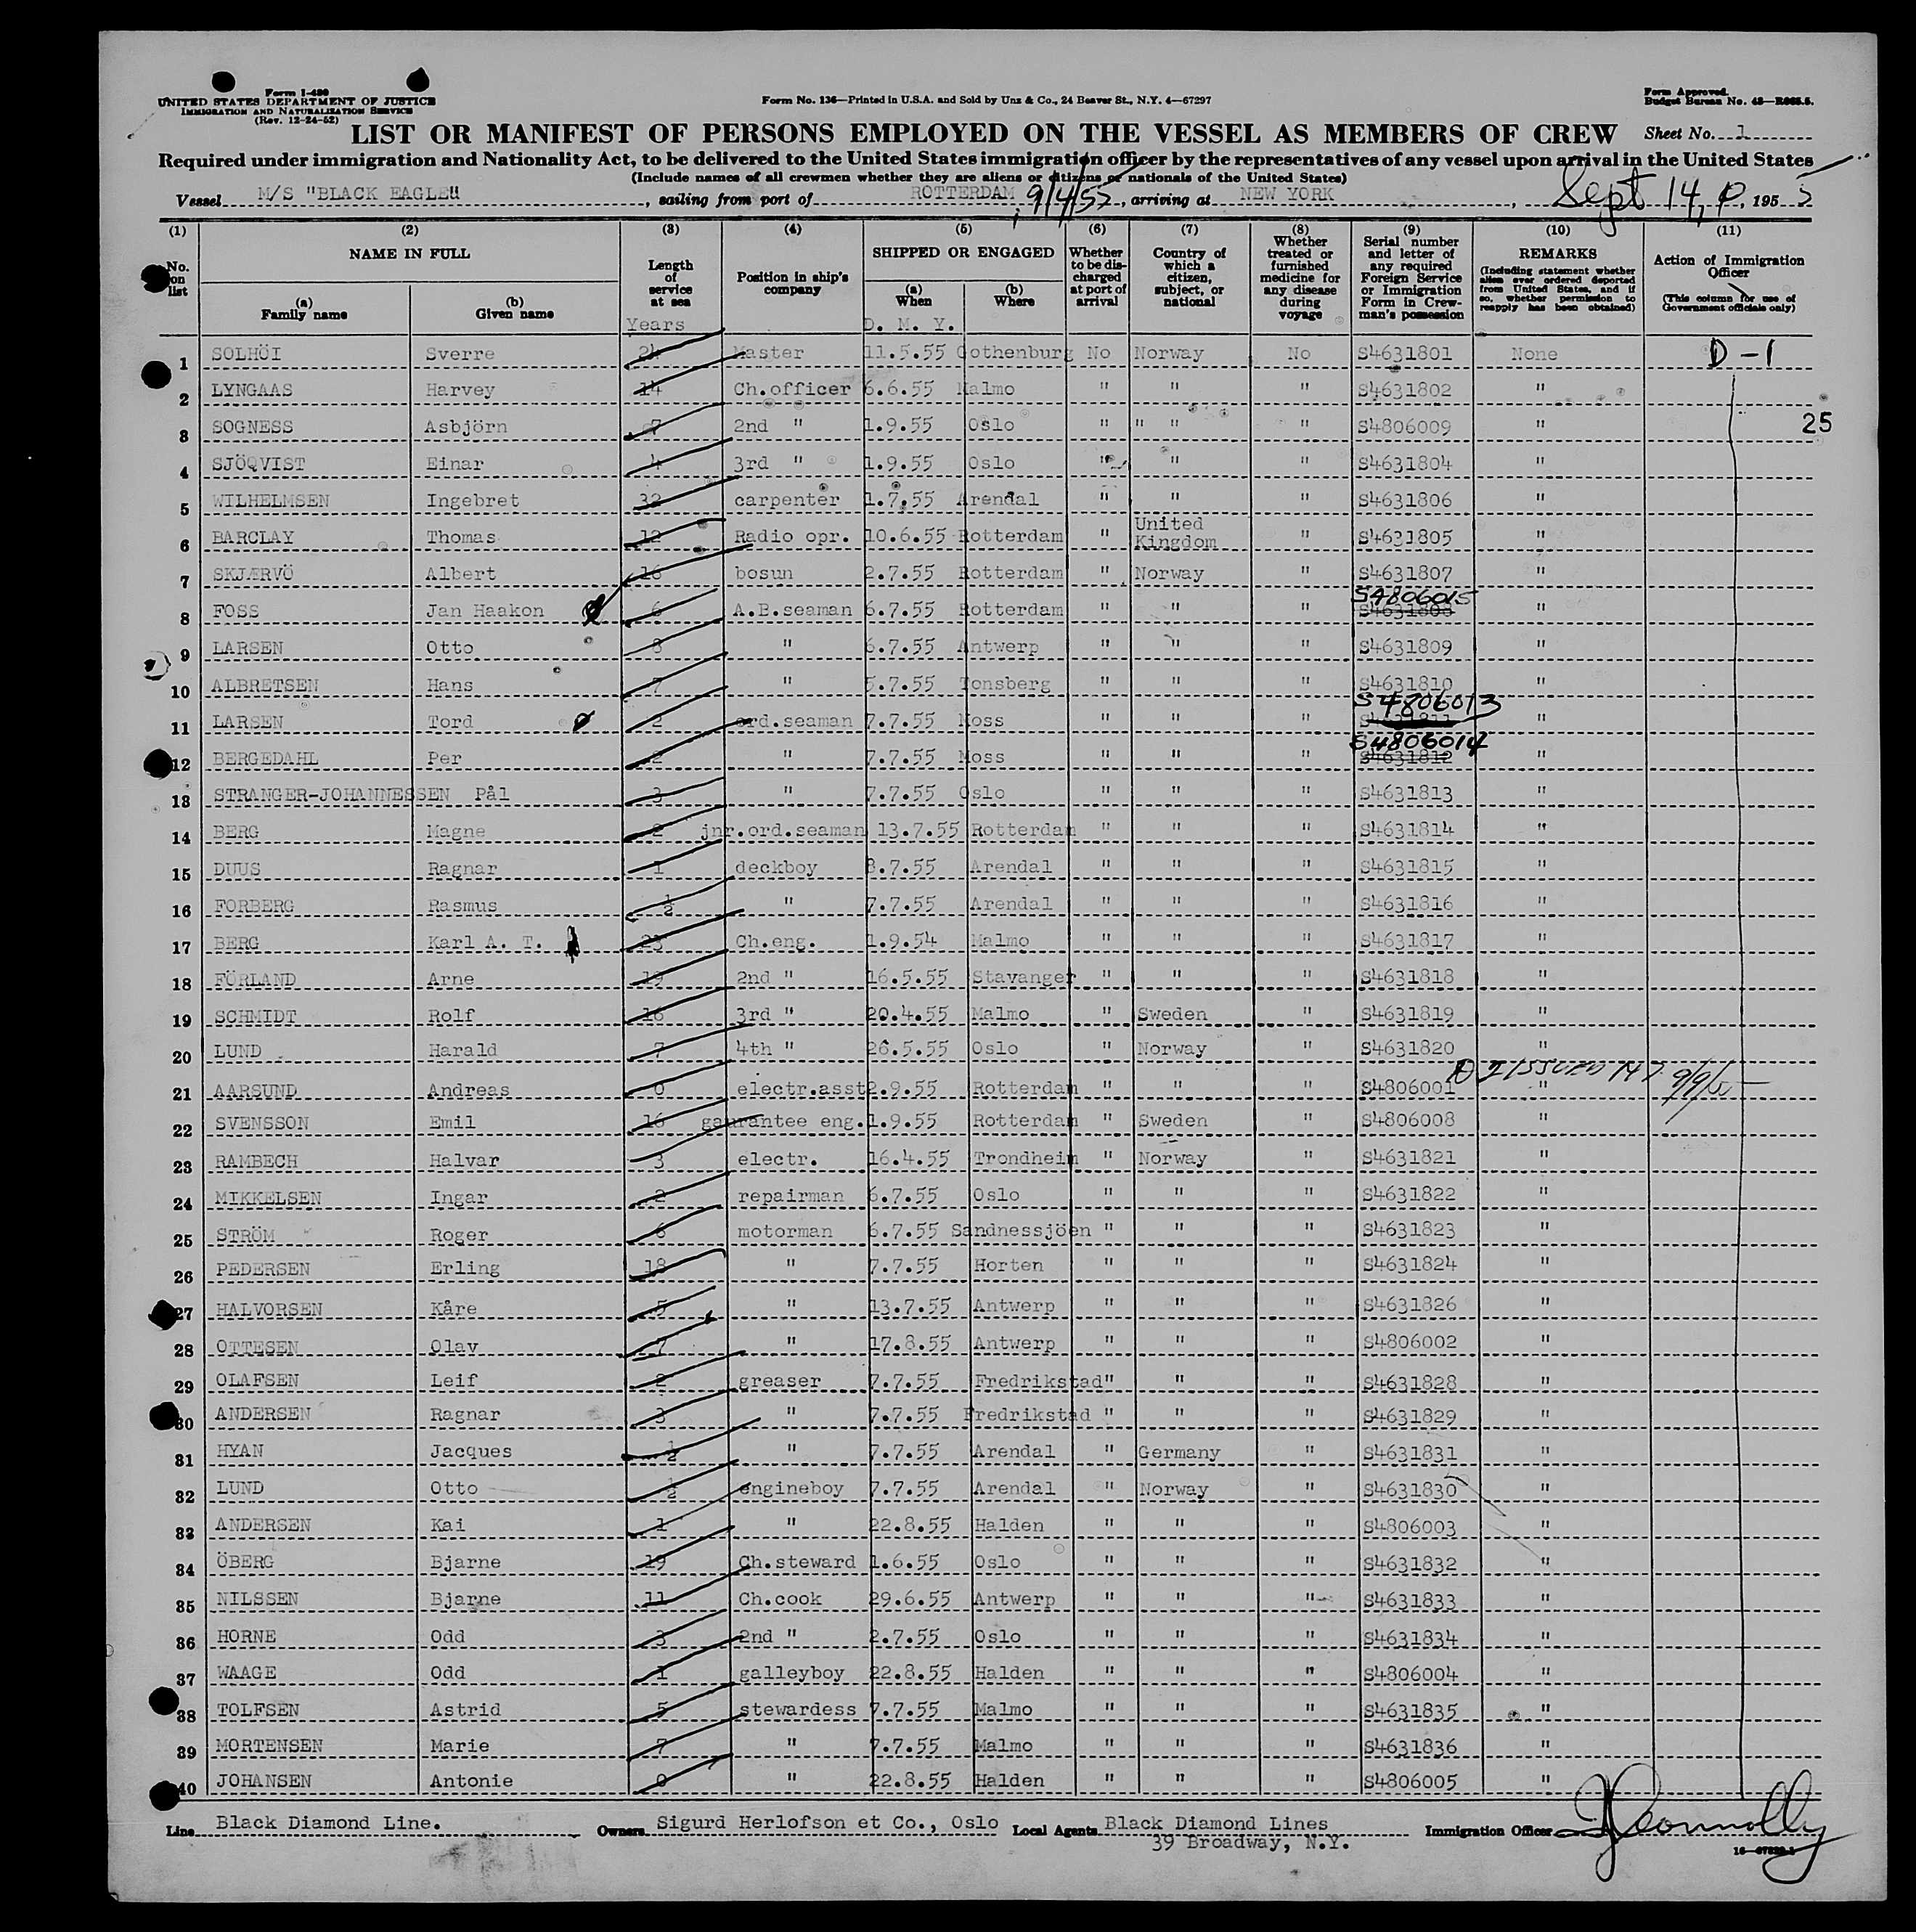 Form I-480
UNITED STATES DEPARTMENT OF JUSTICE
IMMIGRATION AND NATURALIZATION SERVICE
(Rev. 12-24-52)
Form No. 136—Printed in U.S.A. and Sold by Unz & Co., 24 Beaver St., N.Y. 4—67297
Form Approved.
Budget Bureau No. 43—R065.5.
LIST OR MANIFEST OF PERSONS EMPLOYED ON THE VESSEL AS MEMBERS OF CREW Sheet No. 1
Required under immigration and Nationality Act, to be delivered to the United States immigration officer by the representatives of any vessel upon arrival in the United States
(Include names of all crewmen whether they are aliens or citizens or nationals of the United States)
Vessel M/S "BLACK EAGLE", sailing from port of ROTTERDAM, 9/4/55, arriving at NEW YORK, Sept 14, 1955
(1) (2) (3) (4) (5) (6) (7) (8) (9) (10) (11)
No. on list NAME IN FULL (a) Family name (b) Given name Length of service at sea Position in ship's company SHIPPED OR ENGAGED (a) When (b) Where Whether to be discharged at port of arrival Country of which a citizen, subject, or national Whether treated or furnished medicine for any disease during voyage Serial number and letter of any required Foreign Service or Immigration Form in Crewman's possession REMARKS (Including statement whether alien ever ordered deported from United States, and if so, whether permission to reapply has been obtained) Action of Immigration Officer (This column for use of Government officials only)
Years D. M. Y.
1 SOLHÖI Sverre 24 Master 11.5.55 Gothenburg No Norway No S4631801 None D-1
2 LYNGAAS Harvey 14 Ch.officer 6.6.55 Malmo " " " S4631802 "
3 SOGNESS Asbjörn 7 2nd " 1.9.55 Oslo " " " " S4806009 " 25
4 SJÖQVIST Einar 4 3rd " 1.9.55 Oslo " " " S4631804 "
5 WILHELMSEN Ingebret 32 carpenter 1.7.55 Arendal " " " S4631806 "
6 BARCLAY Thomas 12 Radio opr. 10.6.55 Rotterdam " United Kingdom " S4631805 "
7 SKJÆRVÖ Albert 16 bosun 2.7.55 Rotterdam " Norway " S4631807 "
8 FOSS Jan Haakon 6 A.B.seaman 6.7.55 Rotterdam " " " S4806015 S4631808 "
9 LARSEN Otto 8 " 6.7.55 Antwerp " " " S4631809 "
10 ALBRETSEN Hans 7 " 5.7.55 Tonsberg " " " S4631810 "
11 LARSEN Tord 2 ord.seaman 7.7.55 Moss " " " S4806013 S4631811 "
12 BERGEDAHL Per 2 " 7.7.55 Moss " " " S4806014 S4631812 "
13 STRANGER-JOHANNESSEN Pål 3 " 7.7.55 Oslo " " " S4631813 "
14 BERG Magne 2 jnr.ord.seaman 13.7.55 Rotterdam " " " S4631814 "
15 DUUS Ragnar 1 deckboy 8.7.55 Arendal " " " S4631815 "
16 FORBERG Rasmus 1/2 " 7.7.55 Arendal " " " S4631816 "
17 BERG Karl A. T. 23 Ch.eng. 1.9.54 Malmo " " " S4631817 "
18 FÖRLAND Arne 19 2nd " 16.5.55 Stavanger " " " S4631818 "
19 SCHMIDT Rolf 16 3rd " 20.4.55 Malmo " Sweden " S4631819 "
20 LUND Harald 7 4th " 26.5.55 Oslo " Norway " S4631820 "
21 AARSUND Andreas 0 electr.asst 2.9.55 Rotterdam " " " S4806001 "
22 SVENSSON Emil 16 gaurantee eng. 1.9.55 Rotterdam " Sweden " S4806008 "
23 RAMBECH Halvar 3 electr. 16.4.55 Trondheim " Norway " S4631821 "
24 MIKKELSEN Ingar 2 repairman 6.7.55 Oslo " " " S4631822 "
25 STRÖM Roger 6 motorman 6.7.55 Sandnessjöen " " " S4631823 "
26 PEDERSEN Erling 18 " 7.7.55 Horten " " " S4631824 "
27 HALVORSEN Kåre 5 " 13.7.55 Antwerp " " " S4631826 "
28 OTTESEN Olav 7 " 17.8.55 Antwerp " " " S4806002 "
29 OLAFSEN Leif 2 greaser 7.7.55 Fredrikstad " " " S4631828 "
30 ANDERSEN Ragnar 3 " 7.7.55 Fredrikstad " " " S4631829 "
31 HYAN Jacques 1/2 " 7.7.55 Arendal " Germany " S4631831 "
32 LUND Otto 1/2 engineboy 7.7.55 Arendal " Norway " S4631830 "
33 ANDERSEN Kai 1 " 22.8.55 Halden " " " S4806003 "
34 ÖBERG Bjarne 19 Ch.steward 1.6.55 Oslo " " " S4631832 "
35 NILSSEN Bjarne 11 Ch.cook 29.6.55 Antwerp " " " S4631833 "
36 HORNE Odd 3 2nd " 2.7.55 Oslo " " " S4631834 "
37 WAAGE Odd 1 galleyboy 22.8.55 Halden " " " S4806004 "
38 TOLFSEN Astrid 5 stewardess 7.7.55 Malmo " " " S4631835 "
39 MORTENSEN Marie 7 " 7.7.55 Malmo " " " S4631836 "
40 JOHANSEN Antonie 0 " 22.8.55 Halden " " " S4806005 "
Line Black Diamond Line. Owners Sigurd Herlofson et Co., Oslo Local Agents Black Diamond Lines Immigration Officer J Connolly
39 Broadway, N.Y.